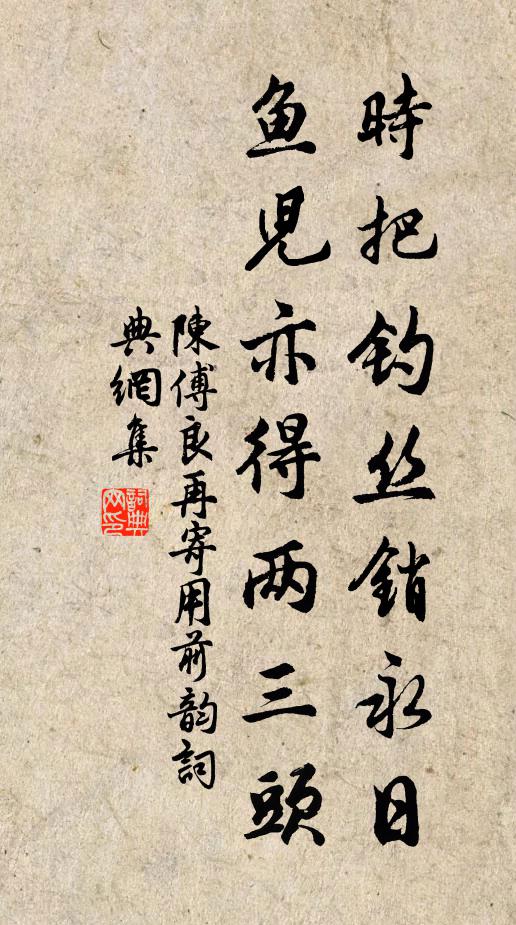 時把钓丝銷永日
鱼児亦得两三頭
陳傅良再寄用前韵詞
典網集
詞典网印